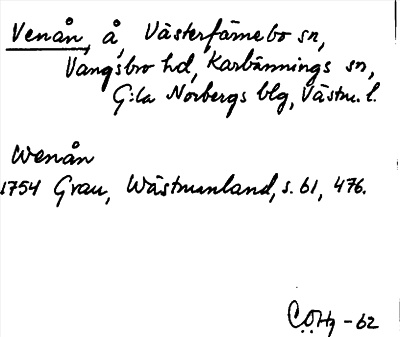 Venån, å, Västerfärnebo sn,
Vangsbro hd, Karbännings sn,
G:la Norbergs blg, Västm. l.
Wenån
1754 Grau, Wästmanland, s. 61, 476.
C.Ö.Hg - 62